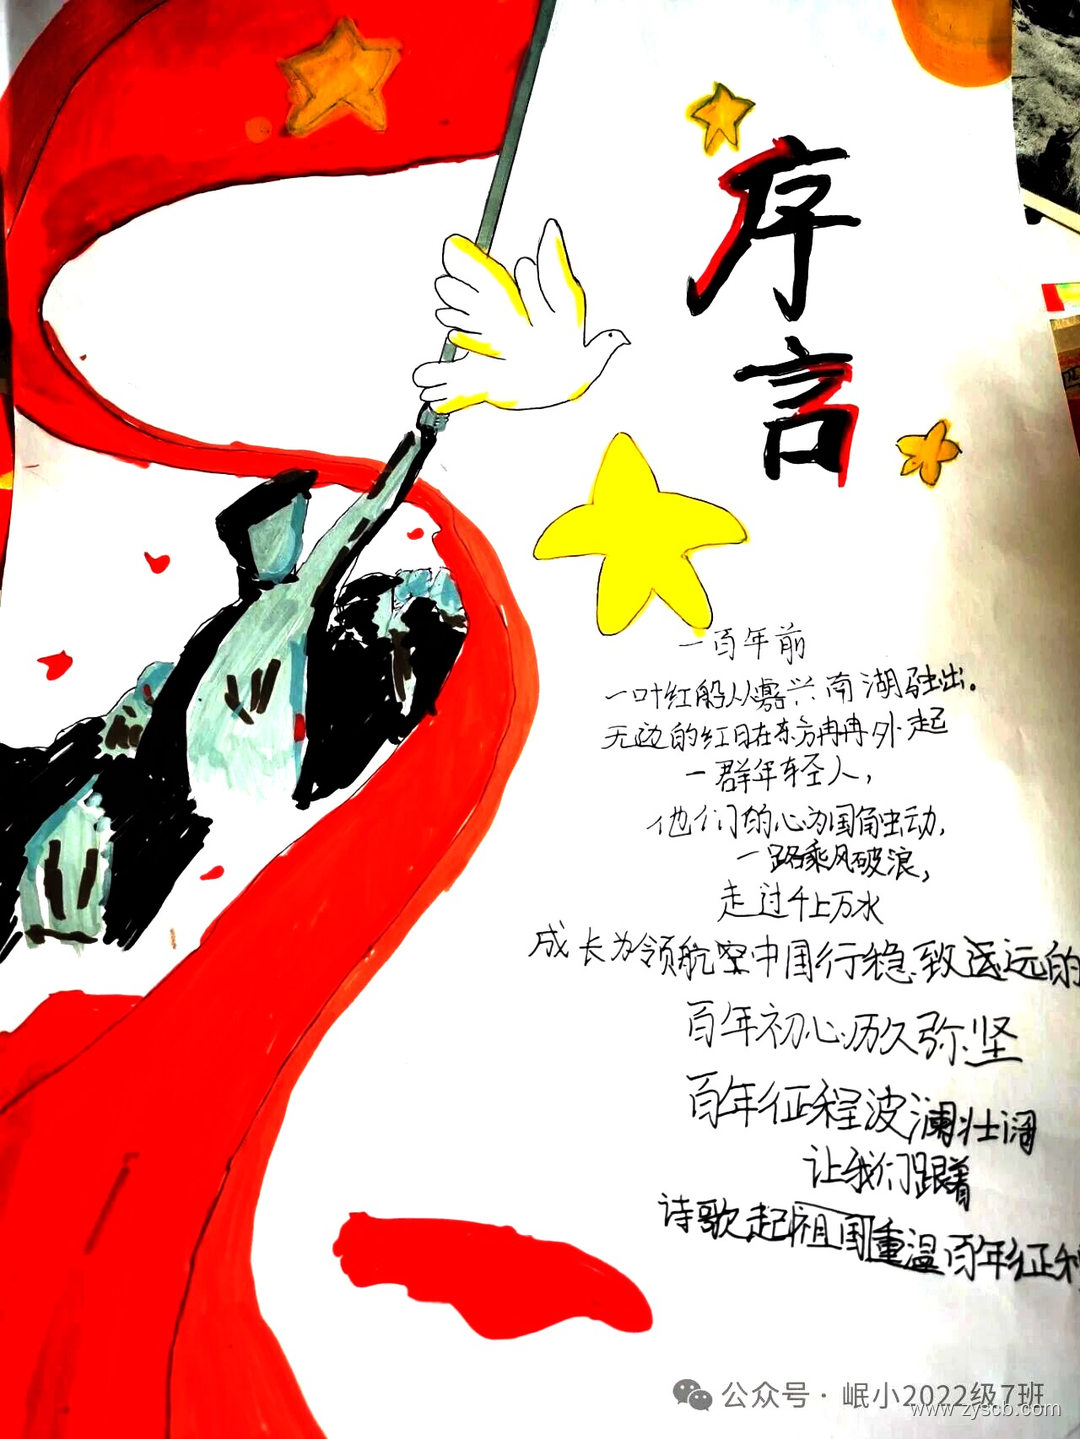 序言
一百年前
一叶红船从嘉兴南湖驶出。
无边的红日在东方冉冉升起
一群年轻人，
他们的心为国角虫动，
一路乘风破浪，
走过千山万水
成长为领航空中国行稳致远远的
百年初心历久弥坚
百年征程波澜壮阔
让我们跟着
诗歌起祖国重温百年征程
公众号·岷小2022级7班
www.zyscb.com